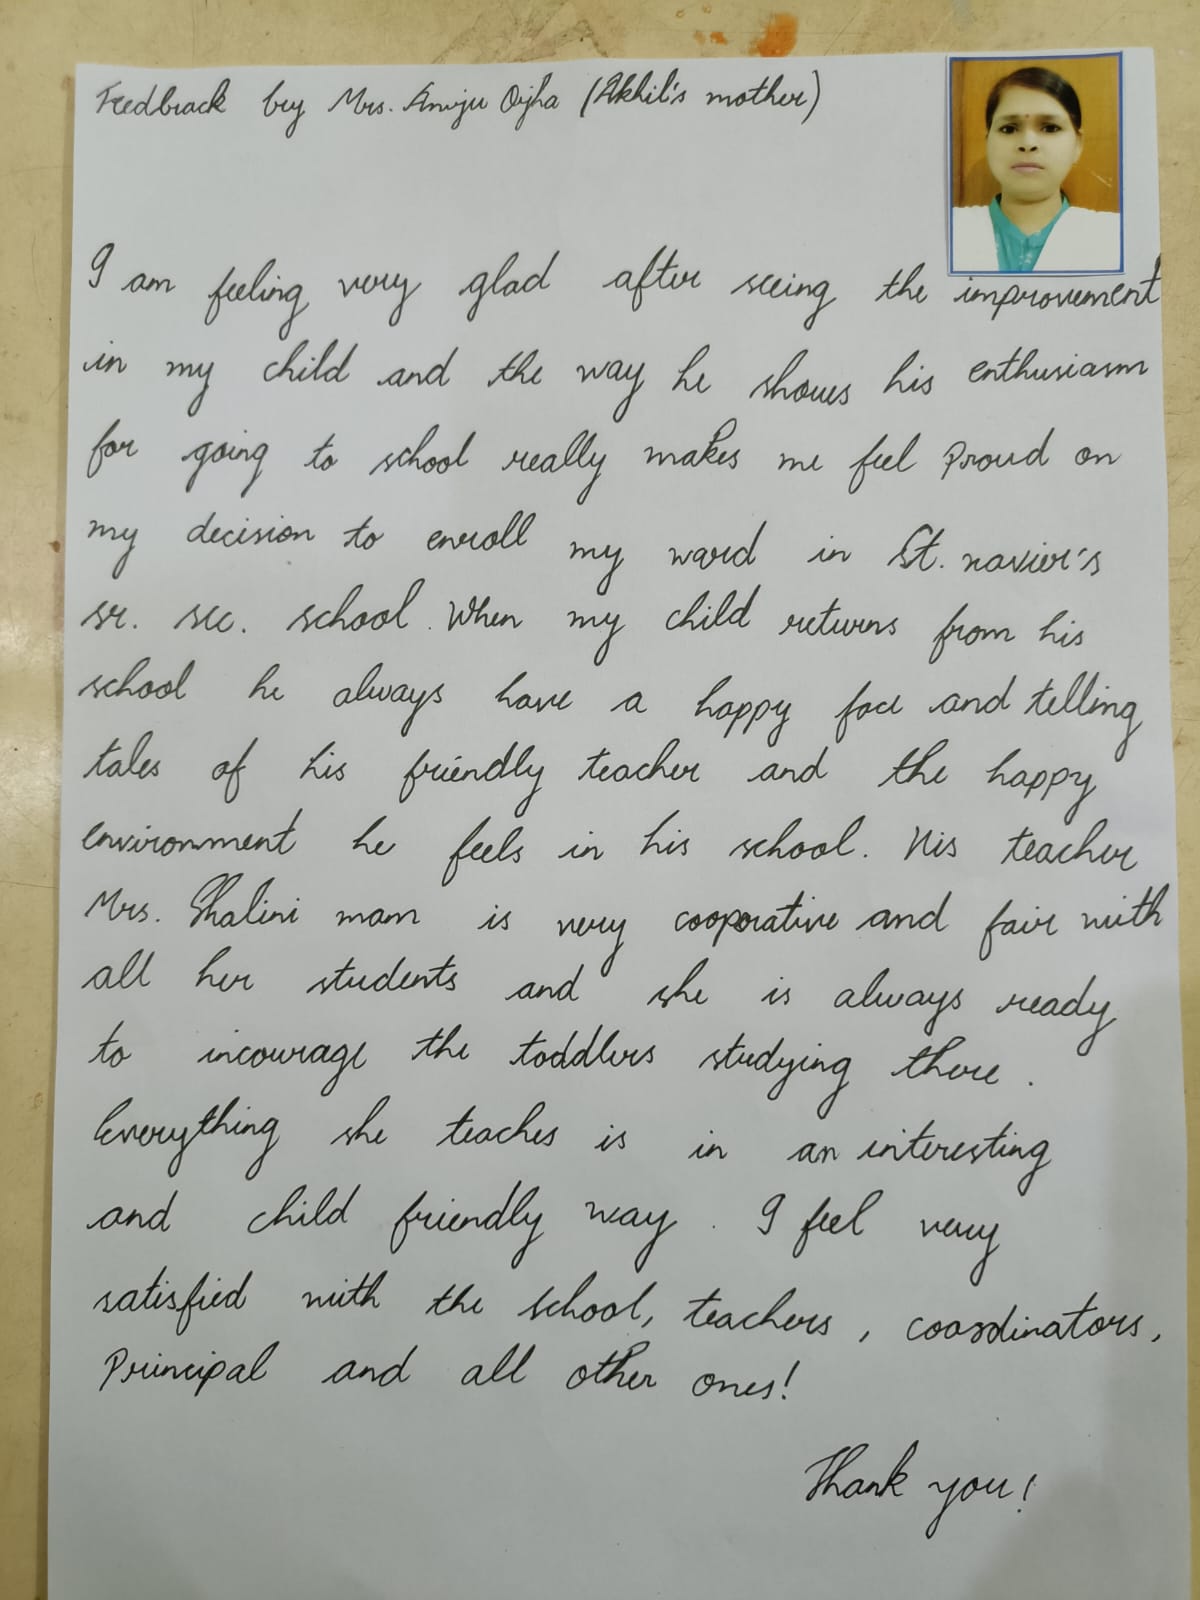 Feedback by Mrs. Anuju Ojha (Akhil's mother)
I am feeling very glad after seeing the improvement
in my child and the way he shows his enthusiasm
for going to school really makes me feel Proud on
my decision to enroll my ward in St. xavier's
sr. sec. school. When my child returns from his
school he always have a happy face and telling
tales of his friendly teacher and the happy
environment he feels in his school. His teacher
Mrs. Shalini mam is very cooperative and fair with
all her students and she is always ready
to incourage the toddlers studying there.
Everything she teaches is in an interesting
and child friendly way. I feel very
satisfied with the school, teachers, coordinators,
Principal and all other ones!
Thank you!